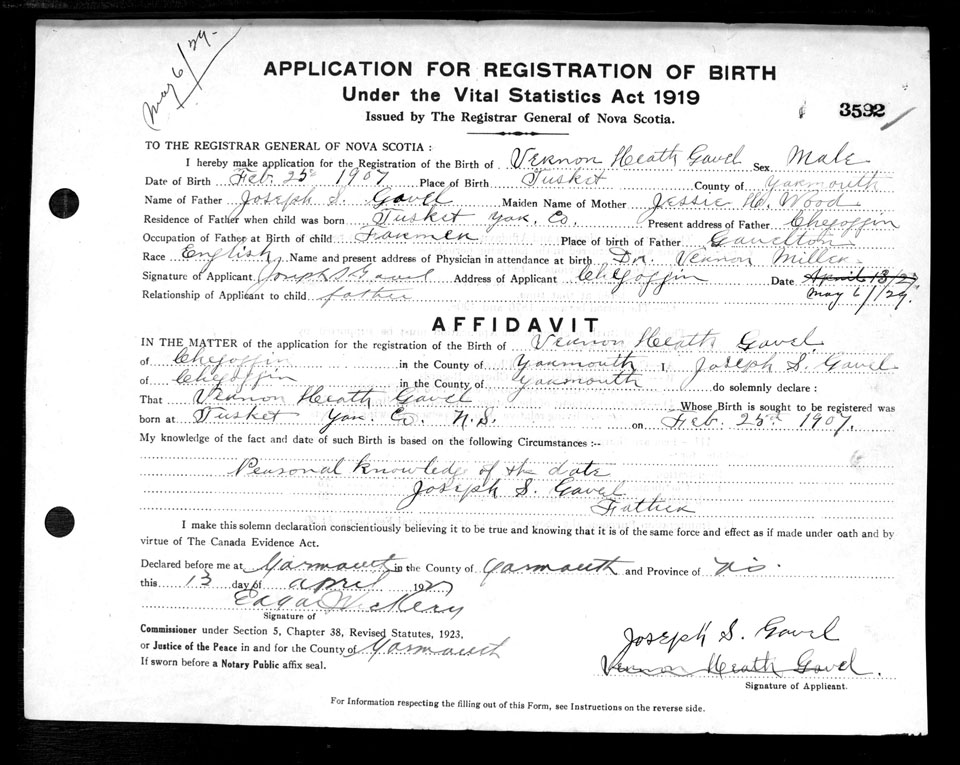 May 6/29-
APPLICATION FOR REGISTRATION OF BIRTH
Under the Vital Statistics Act 1919
Issued by The Registrar General of Nova Scotia.
3592
TO THE REGISTRAR GENERAL OF NOVA SCOTIA :
I hereby make application for the Registration of the Birth of Vernon Heath Gavel Sex Male
Date of Birth Feb. 25th 1907 Place of Birth Tusket County of Yarmouth
Name of Father Joseph S. Gavel Maiden Name of Mother Jessie Wood
Residence of Father when child was born Tusket Yar. Co. Present address of Father Chegoffin
Occupation of Father at Birth of child Farmer Place of birth of Father Gavelton
Race English Name and present address of Physician in attendance at birth Dr. Vernon Miller
Signature of Applicant Joseph S Gavel Address of Applicant Chegoffin Date April 13/27
May 6/29.
Relationship of Applicant to child father
AFFIDAVIT
IN THE MATTER of the application for the registration of the Birth of Vernon Heath Gavel
of Chegoffin in the County of Yarmouth I, Joseph S. Gavel
of Chegoffin in the County of Yarmouth do solemnly declare :
That Vernon Heath Gavel Whose Birth is sought to be registered was
born at Tusket Yar. Co. N.S. on Feb. 25th 1907.
My knowledge of the fact and date of such Birth is based on the following Circumstances :--
Personal knowledge of the date
Joseph S. Gavel
Father
I make this solemn declaration conscientiously believing it to be true and knowing that it is of the same force and effect as if made under oath and by
virtue of The Canada Evidence Act.
Declared before me at Yarmouth in the County of Yarmouth and Province of N.S.
this 13 day of April 1927
Edgar Vickery
Signature of
Commissioner under Section 5, Chapter 38, Revised Statutes, 1923,
or Justice of the Peace in and for the County of Yarmouth
If sworn before a Notary Public affix seal.
Joseph S. Gavel
Vernon Heath Gavel.
Signature of Applicant.
For Information respecting the filling out of this Form, see Instructions on the reverse side.